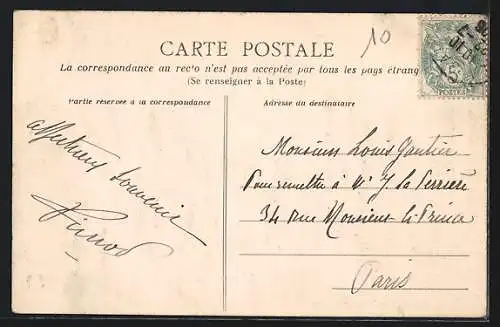 10
CARTE POSTALE
La correspondance au recto n'est pas acceptée par tous les pays étrang
(Se renseigner à la Poste)
Partie réservée à la correspondance
Adresse du destinataire
POSTES
affectueux souvenir
Monsieur Louis Gautier
Pour remettre à Mr J. La Perrière
34 rue Monsieur le Prince
Paris